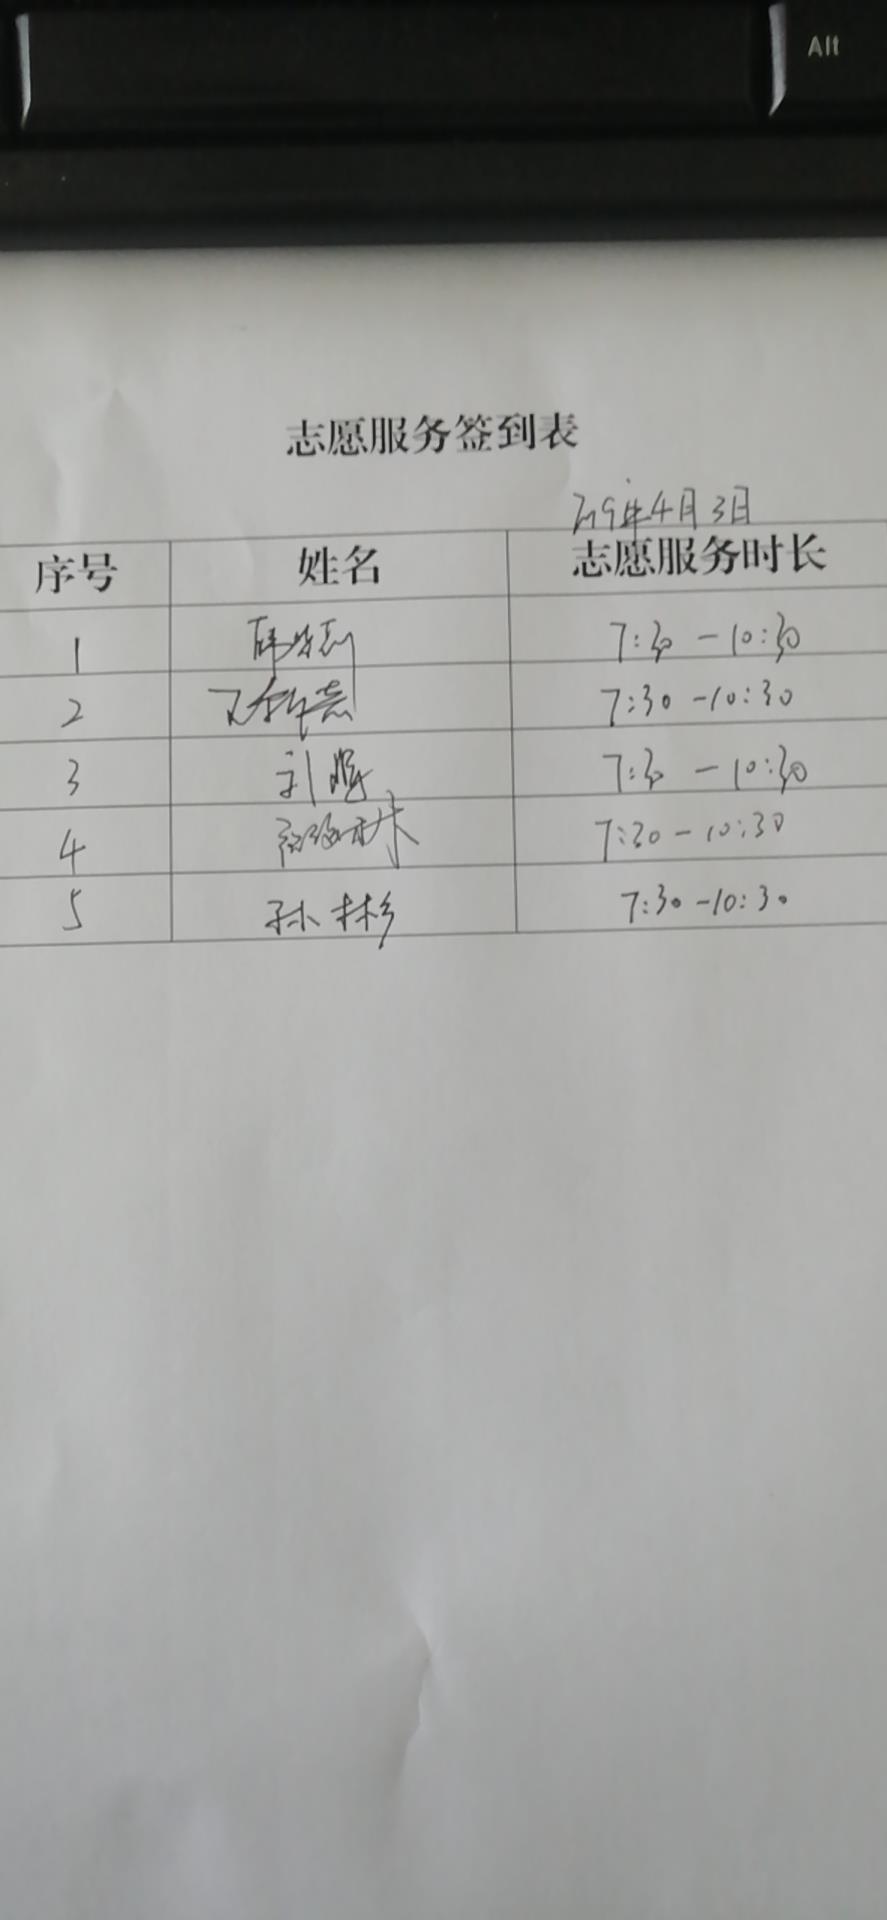 Alt
志愿服务签到表
2019年4月3日
序号 姓名 志愿服务时长
1 7:30-10:30
2 7:30-10:30
3 刘 7:30-10:30
4 7:30-10:30
5 孙彬 7:30-10:30